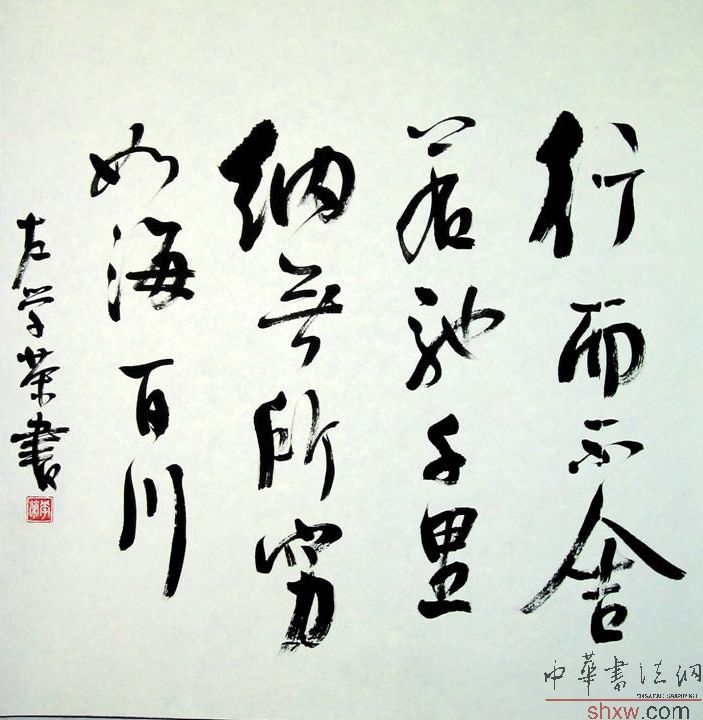 行而不舍
若驰千里
纳无所穷
如海百川
左学荣书
中華書法網
shxw.com